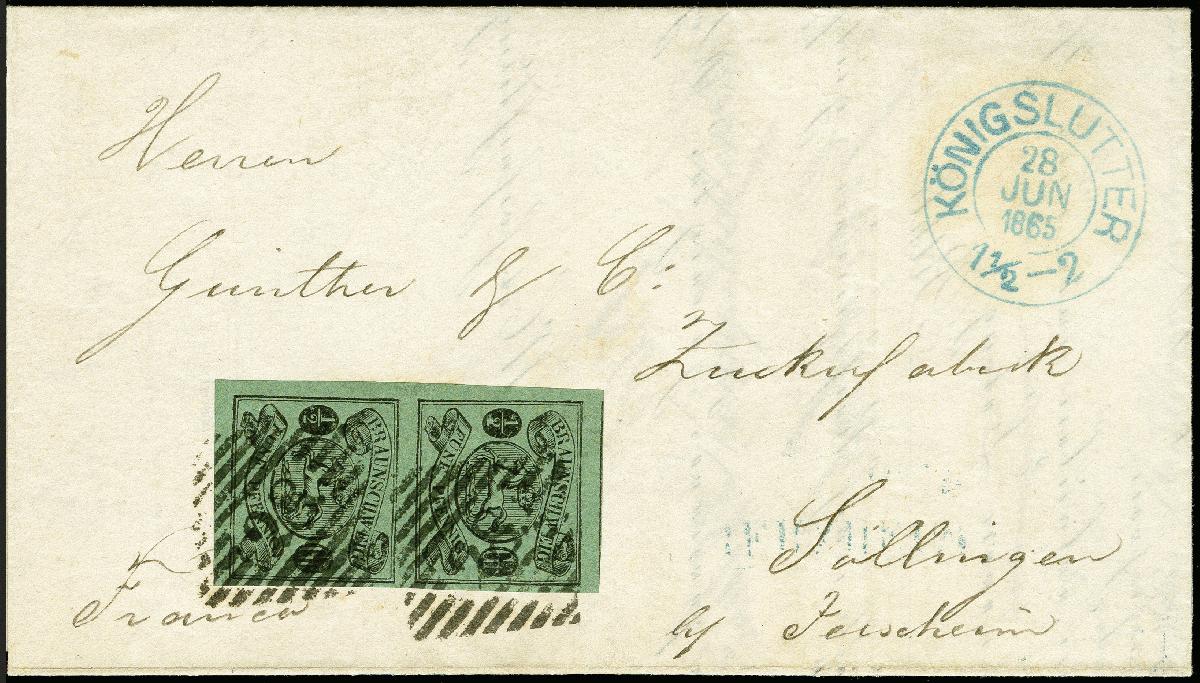 Herren
Günther & C:
Zuckerfabrik
Söllingen
by Jerxheim
Franco
KÖNIGSLUTTER
28
JUN
1865
1½-2
½
BRAUNSCHWEIG
½
BRAUNSCHWEIG